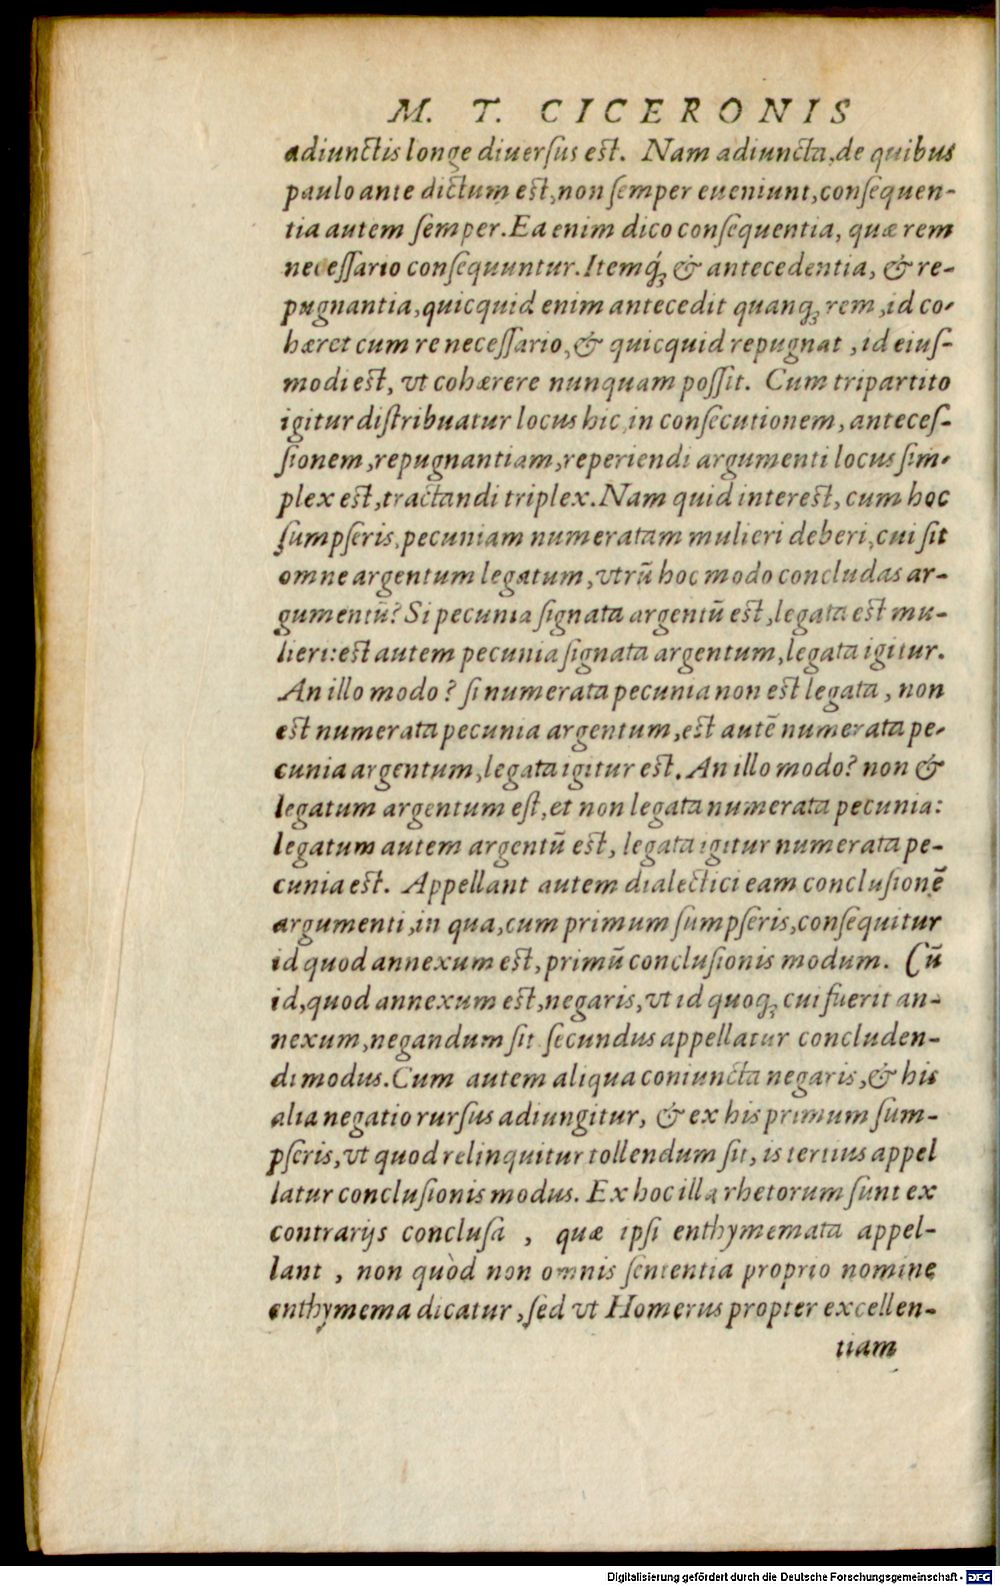 M. T. CICERONIS
adiunctis longe diuersus est. Nam adiuncta, de quibus
paulo ante dictum est, non semper eueniunt, consequen-
tia autem semper. Ea enim dico consequentia, quæ rem
necessario consequuntur. Itemq́ꝫ & antecedentia, & re-
pugnantia, quicquid enim antecedit quanqꝫ rem, id co-
hæret cum re necessario, & quicquid repugnat, id eius-
modi est, vt cohærere nunquam possit. Cum tripartito
igitur distribuatur locus hic in consecutionem, anteces-
sionem, repugnantiam, reperiendi argumenti locus sim-
plex est, tractandi triplex. Nam quid interest, cum hoc
sumpseris, pecuniam numeratam mulieri deberi, cui sit
omne argentum legatum, vtrū hoc modo concludas ar-
gumentū? Si pecunia signata argentū est, legata est mu-
lieri: est autem pecunia signata argentum, legata igitur.
An illo modo? si numerata pecunia non est legata, non
est numerata pecunia argentum, est autē numerata pe-
cunia argentum, legata igitur est. An illo modo? non &
legatum argentum est, et non legata numerata pecunia:
legatum autem argentū est, legata igitur numerata pe-
cunia est. Appellant autem dialectici eam conclusionē
argumenti, in qua, cum primum sumpseris, consequitur
id quod annexum est, primū conclusionis modum. Cū
id, quod annexum est, negaris, vt id quoqꝫ cui fuerit an-
nexum, negandum sit secundus appellatur concluden-
di modus. Cum autem aliqua coniuncta negaris, & his
alia negatio rursus adiungitur, & ex his primum sum-
pseris, vt quod relinquitur tollendum sit, is tertius appel
latur conclusionis modus. Ex hoc illa rhetorum sunt ex
contrarijs conclusa, quæ ipsi enthymemata appel-
lant, non quòd non omnis sententia proprio nomine
enthymema dicatur, sed vt Homerus propter excellen-
tiam
Digitalisierung gefördert durch die Deutsche Forschungsgemeinschaft - DFG